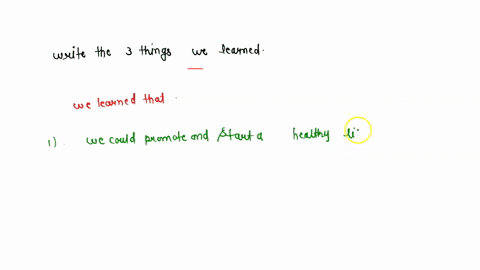 write the 3 things we learned.
we learned that .
1) we could promote and start a healthy li